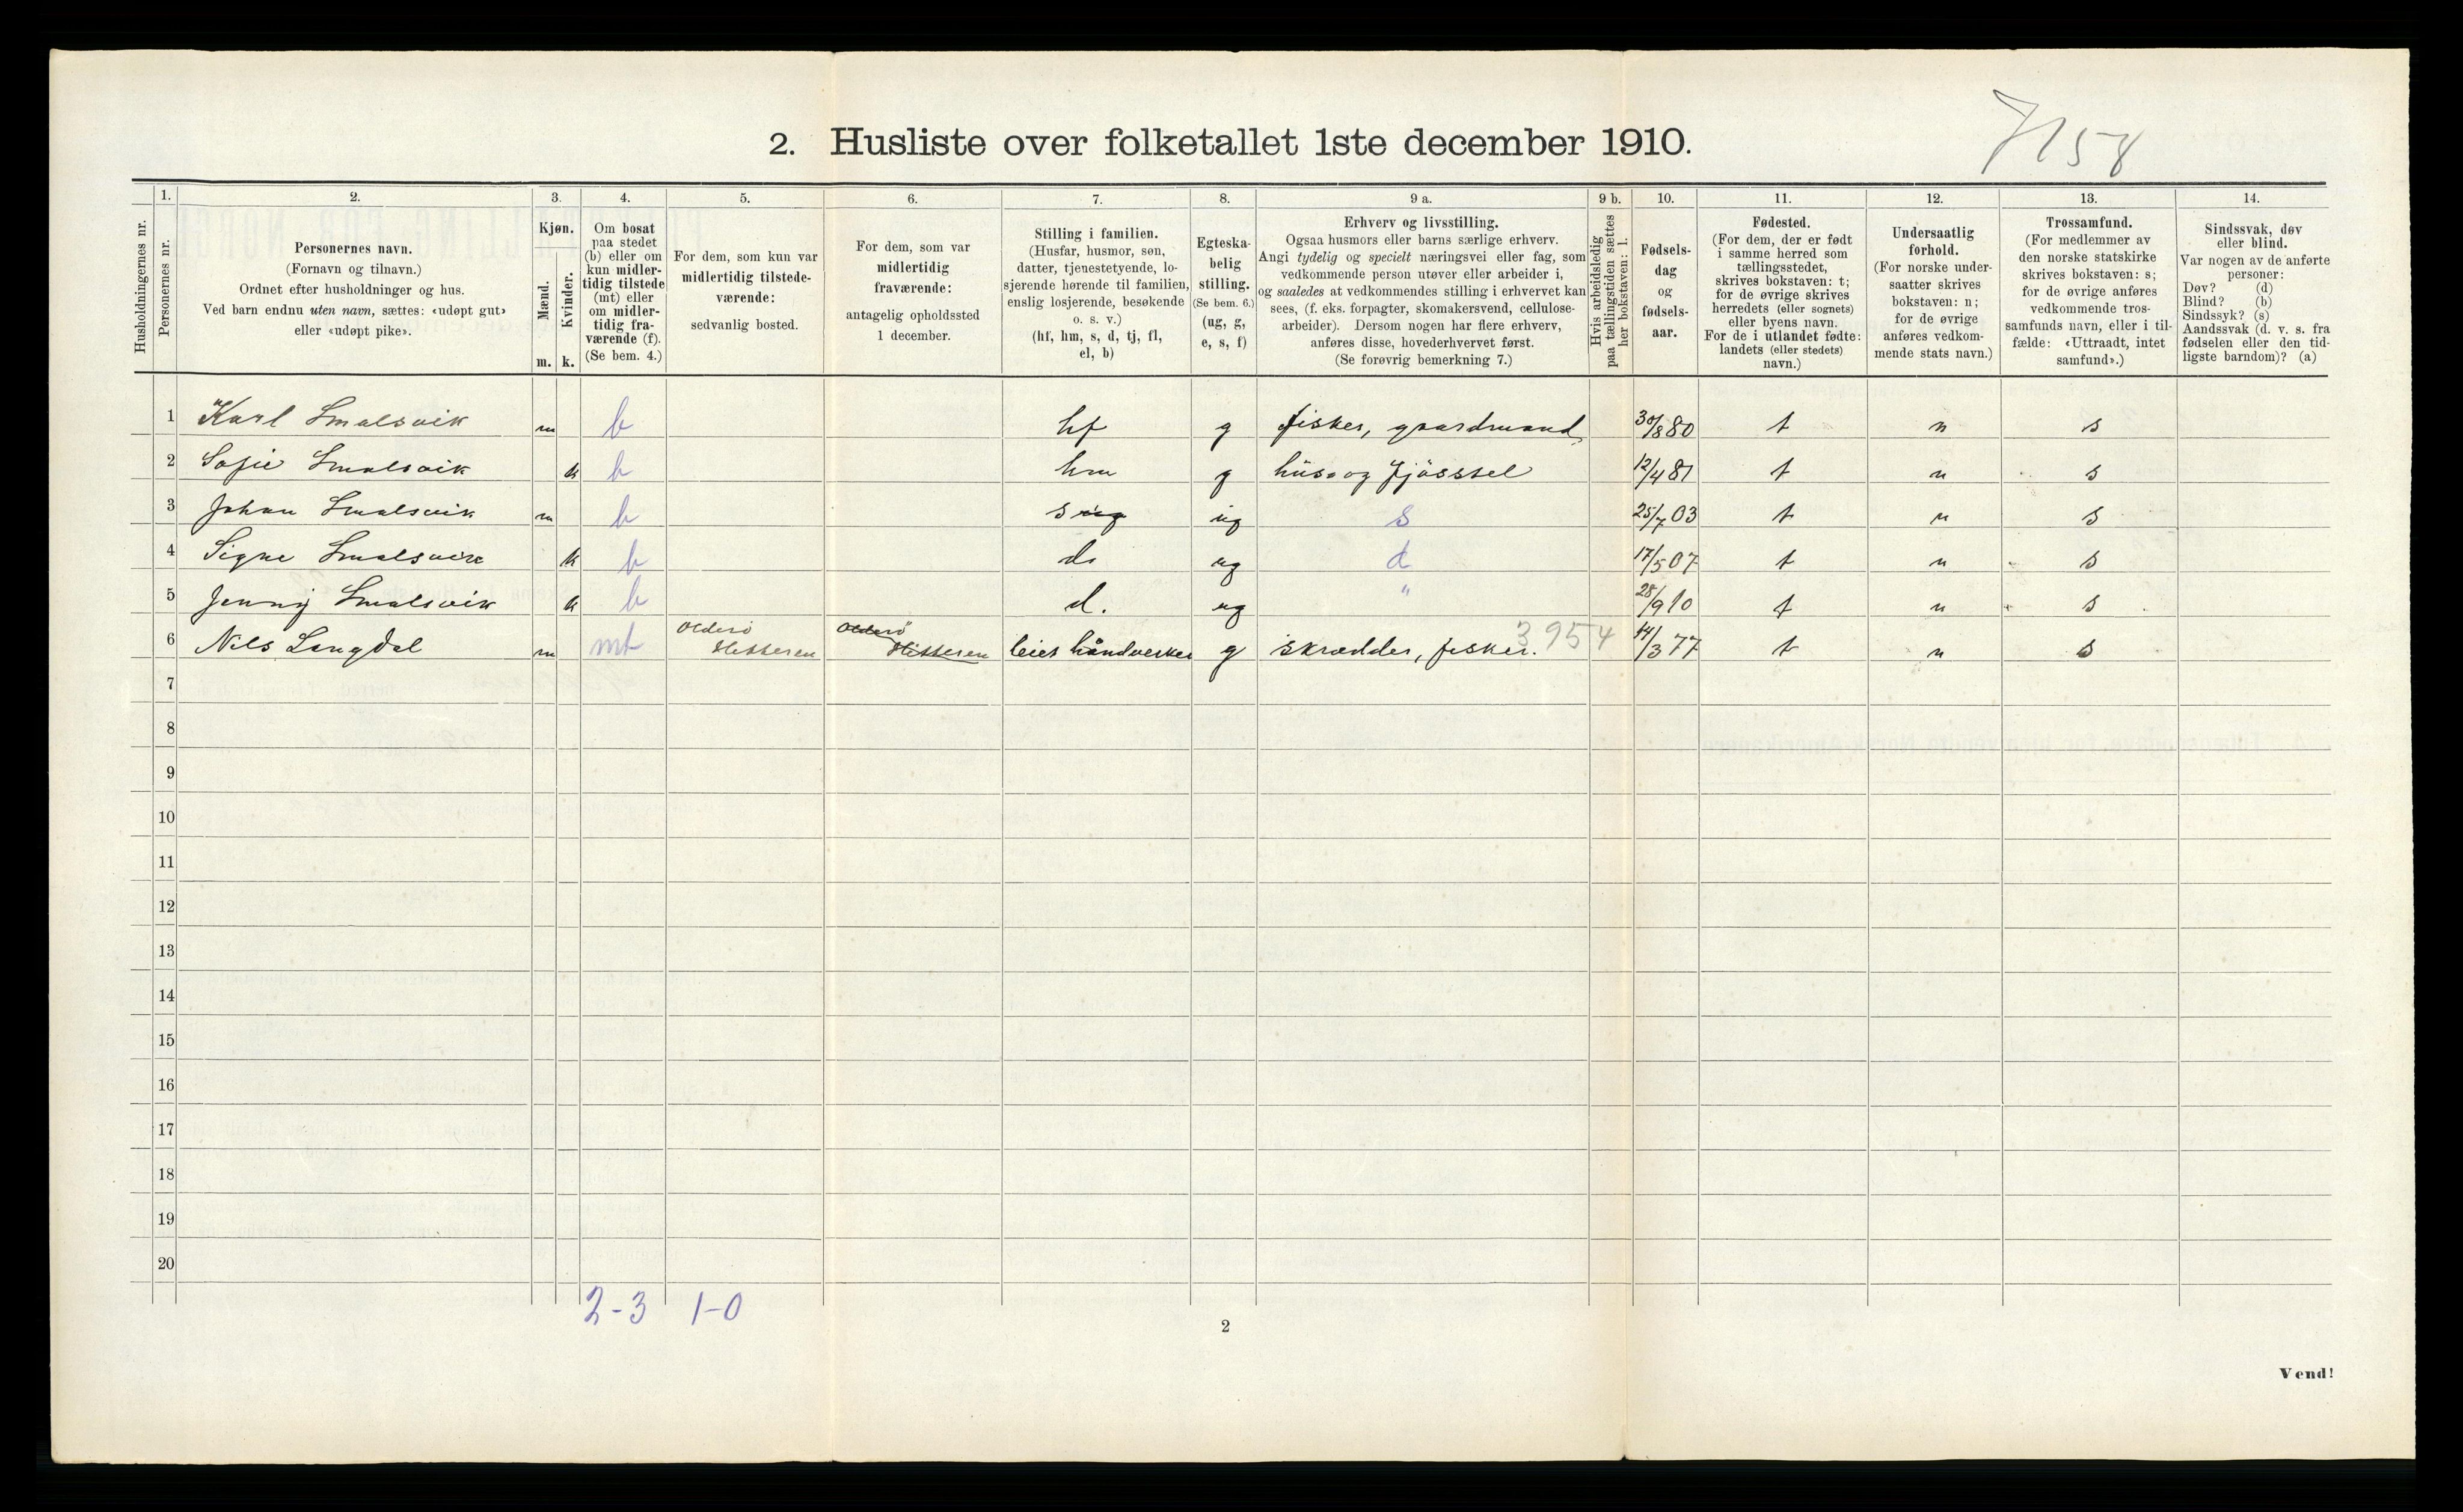 7158
2. Husliste over folketallet 1ste december 1910.
Husholdningernes nr.
1.
Personernes nr.
2.
Personernes navn.
(Fornavn og tilnavn.)
Ordnet efter husholdninger og hus.
Ved barn endnu uten navn, sættes: «udøpt gut»
eller «udøpt pike».
3.
Kjøn.
Mænd.
Kvinder.
m. k.
4.
Om bosat
paa stedet
(b) eller om
kun midler-
tidig tilstede
(mt) eller
om midler-
tidig fra-
værende (f).
(Se bem. 4.)
5.
For dem, som kun var
midlertidig tilstede-
værende:
sedvanlig bosted.
6.
For dem, som var
midlertidig
fraværende:
antagelig opholdssted
1 december.
7.
Stilling i familien.
(Husfar, husmor, søn,
datter, tjenestetyende, lo-
sjerende hørende til familien,
enslig losjerende, besøkende
o. s. v.)
(hf, hm, s, d, tj, fl,
el, b)
8.
Egteska-
belig
stilling.
(Se bem. 6.)
(ug, g,
e, s, f)
9 a.
Erhverv og livsstilling.
Ogsaa husmors eller barns særlige erhverv.
Angi tydelig og specielt næringsvei eller fag, som
vedkommende person utøver eller arbeider i,
og saaledes at vedkommendes stilling i erhvervet kan
sees, (f. eks. forpagter, skomakersvend, cellulose-
arbeider). Dersom nogen har flere erhverv,
anføres disse, hovederhvervet først.
(Se forøvrig bemerkning 7.)
9 b.
Hvis arbeidsledig
paa tællingstiden sættes
her bokstaven: l.
10.
Fødsels-
dag
og
fødsels-
aar.
11.
Fødested.
(For dem, der er født
i samme herred som
tællingsstedet,
skrives bokstaven: t;
for de øvrige skrives
herredets (eller sognets)
eller byens navn.
For de i utlandet fødte:
landets (eller stedets)
navn.)
12.
Undersaatlig
forhold.
(For norske under-
saatter skrives
bokstaven: n;
for de øvrige
anføres vedkom-
mende stats navn.)
13.
Trossamfund.
(For medlemmer av
den norske statskirke
skrives bokstaven: s;
for de øvrige anføres
vedkommende tros-
samfunds navn, eller i til-
fælde: «Uttraadt, intet
samfund».)
14.
Sindssvak, døv
eller blind.
Var nogen av de anførte
personer:
Døv? (d)
Blind? (b)
Sindssyk? (s)
Aandssvak (d. v. s. fra
fødselen eller den tid-
ligste barndom)? (a)
1 Karl Smalsvik m b hf g fisker, gaardmand 30/8 80 t n s
2 Sofie Smalsvik k b hm g hus og fjösstel 12/4 81 t n s
3 Johan Smalsvik m b s ug ug s 25/7 03 t n s
4 Signe Smalsvik k b d. ug d 17/5 07 t n s
5 Jenny Smalsvik k b d. ug " 28/9 10 t n s
6 Nils Langdal m mt Olderö Hitteren Olderö Hitteren leiet håndverker g skrædder, fisker. 3954 14/3 77 t n s
7
8
9
10
11
12
13
14
15
16
17
18
19
20
2-3 1-0
2
Vend!